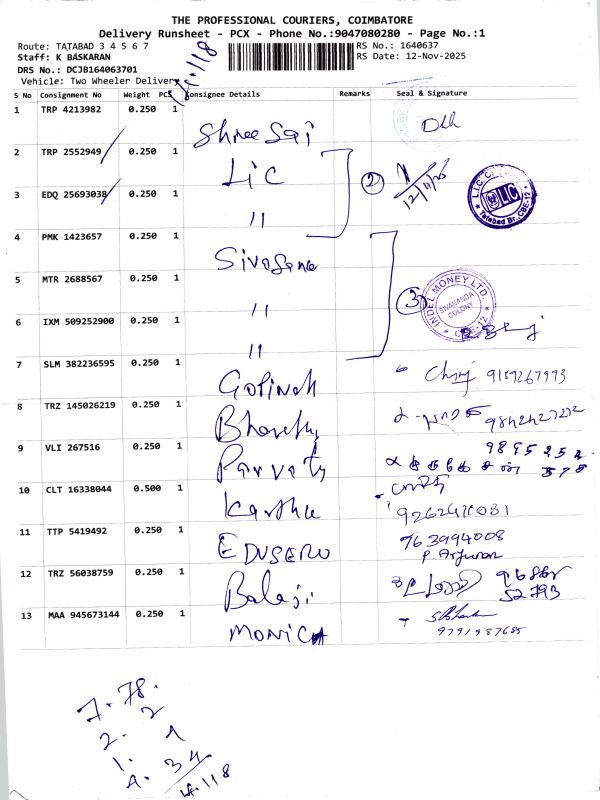 THE PROFESSIONAL COURIERS, COIMBATORE
Delivery Runsheet - PCX - Phone No.:9047080280 - Page No.:1
Route: TATABAD 3 4 5 6 7
RS No.: 1640637
Staff: K BASKARAN
RS Date: 12-Nov-2025
DRS No.: DCJB164063701
Vehicle: Two Wheeler Delivery
S No Consignment No Weight PCS Consignee Details Remarks Seal & Signature
1 TRP 4213982 0.250 1 Shree Sai
2 TRP 2552949 0.250 1 LIC 2 12/11/25
3 EDQ 25693038 0.250 1 "
LIC
Tatabad Br., CBE-12
4 PMK 1423657 0.250 1 Sivasana
5 MTR 2688567 0.250 1 " 3
INDEL MONEY LTD.
SIVANANDA COLONY
CBE-12
6 IXM 509252900 0.250 1 "
7 SLM 382236595 0.250 1 Gopinath 9159267973
8 TRZ 145026219 0.250 1 Bharathy
9 VLI 267516 0.250 1 Parvaty
10 CLT 16338044 0.500 1 Karthi
11 TTP 5419492 0.250 1 EDUSERU 763994008
P. Arjunan
12 TRZ 56038759 0.250 1 Balaji
52793
13 MAA 945673144 0.250 1 MONICA
9791987685
7. 78.
2. 2
1. 1
4. 34